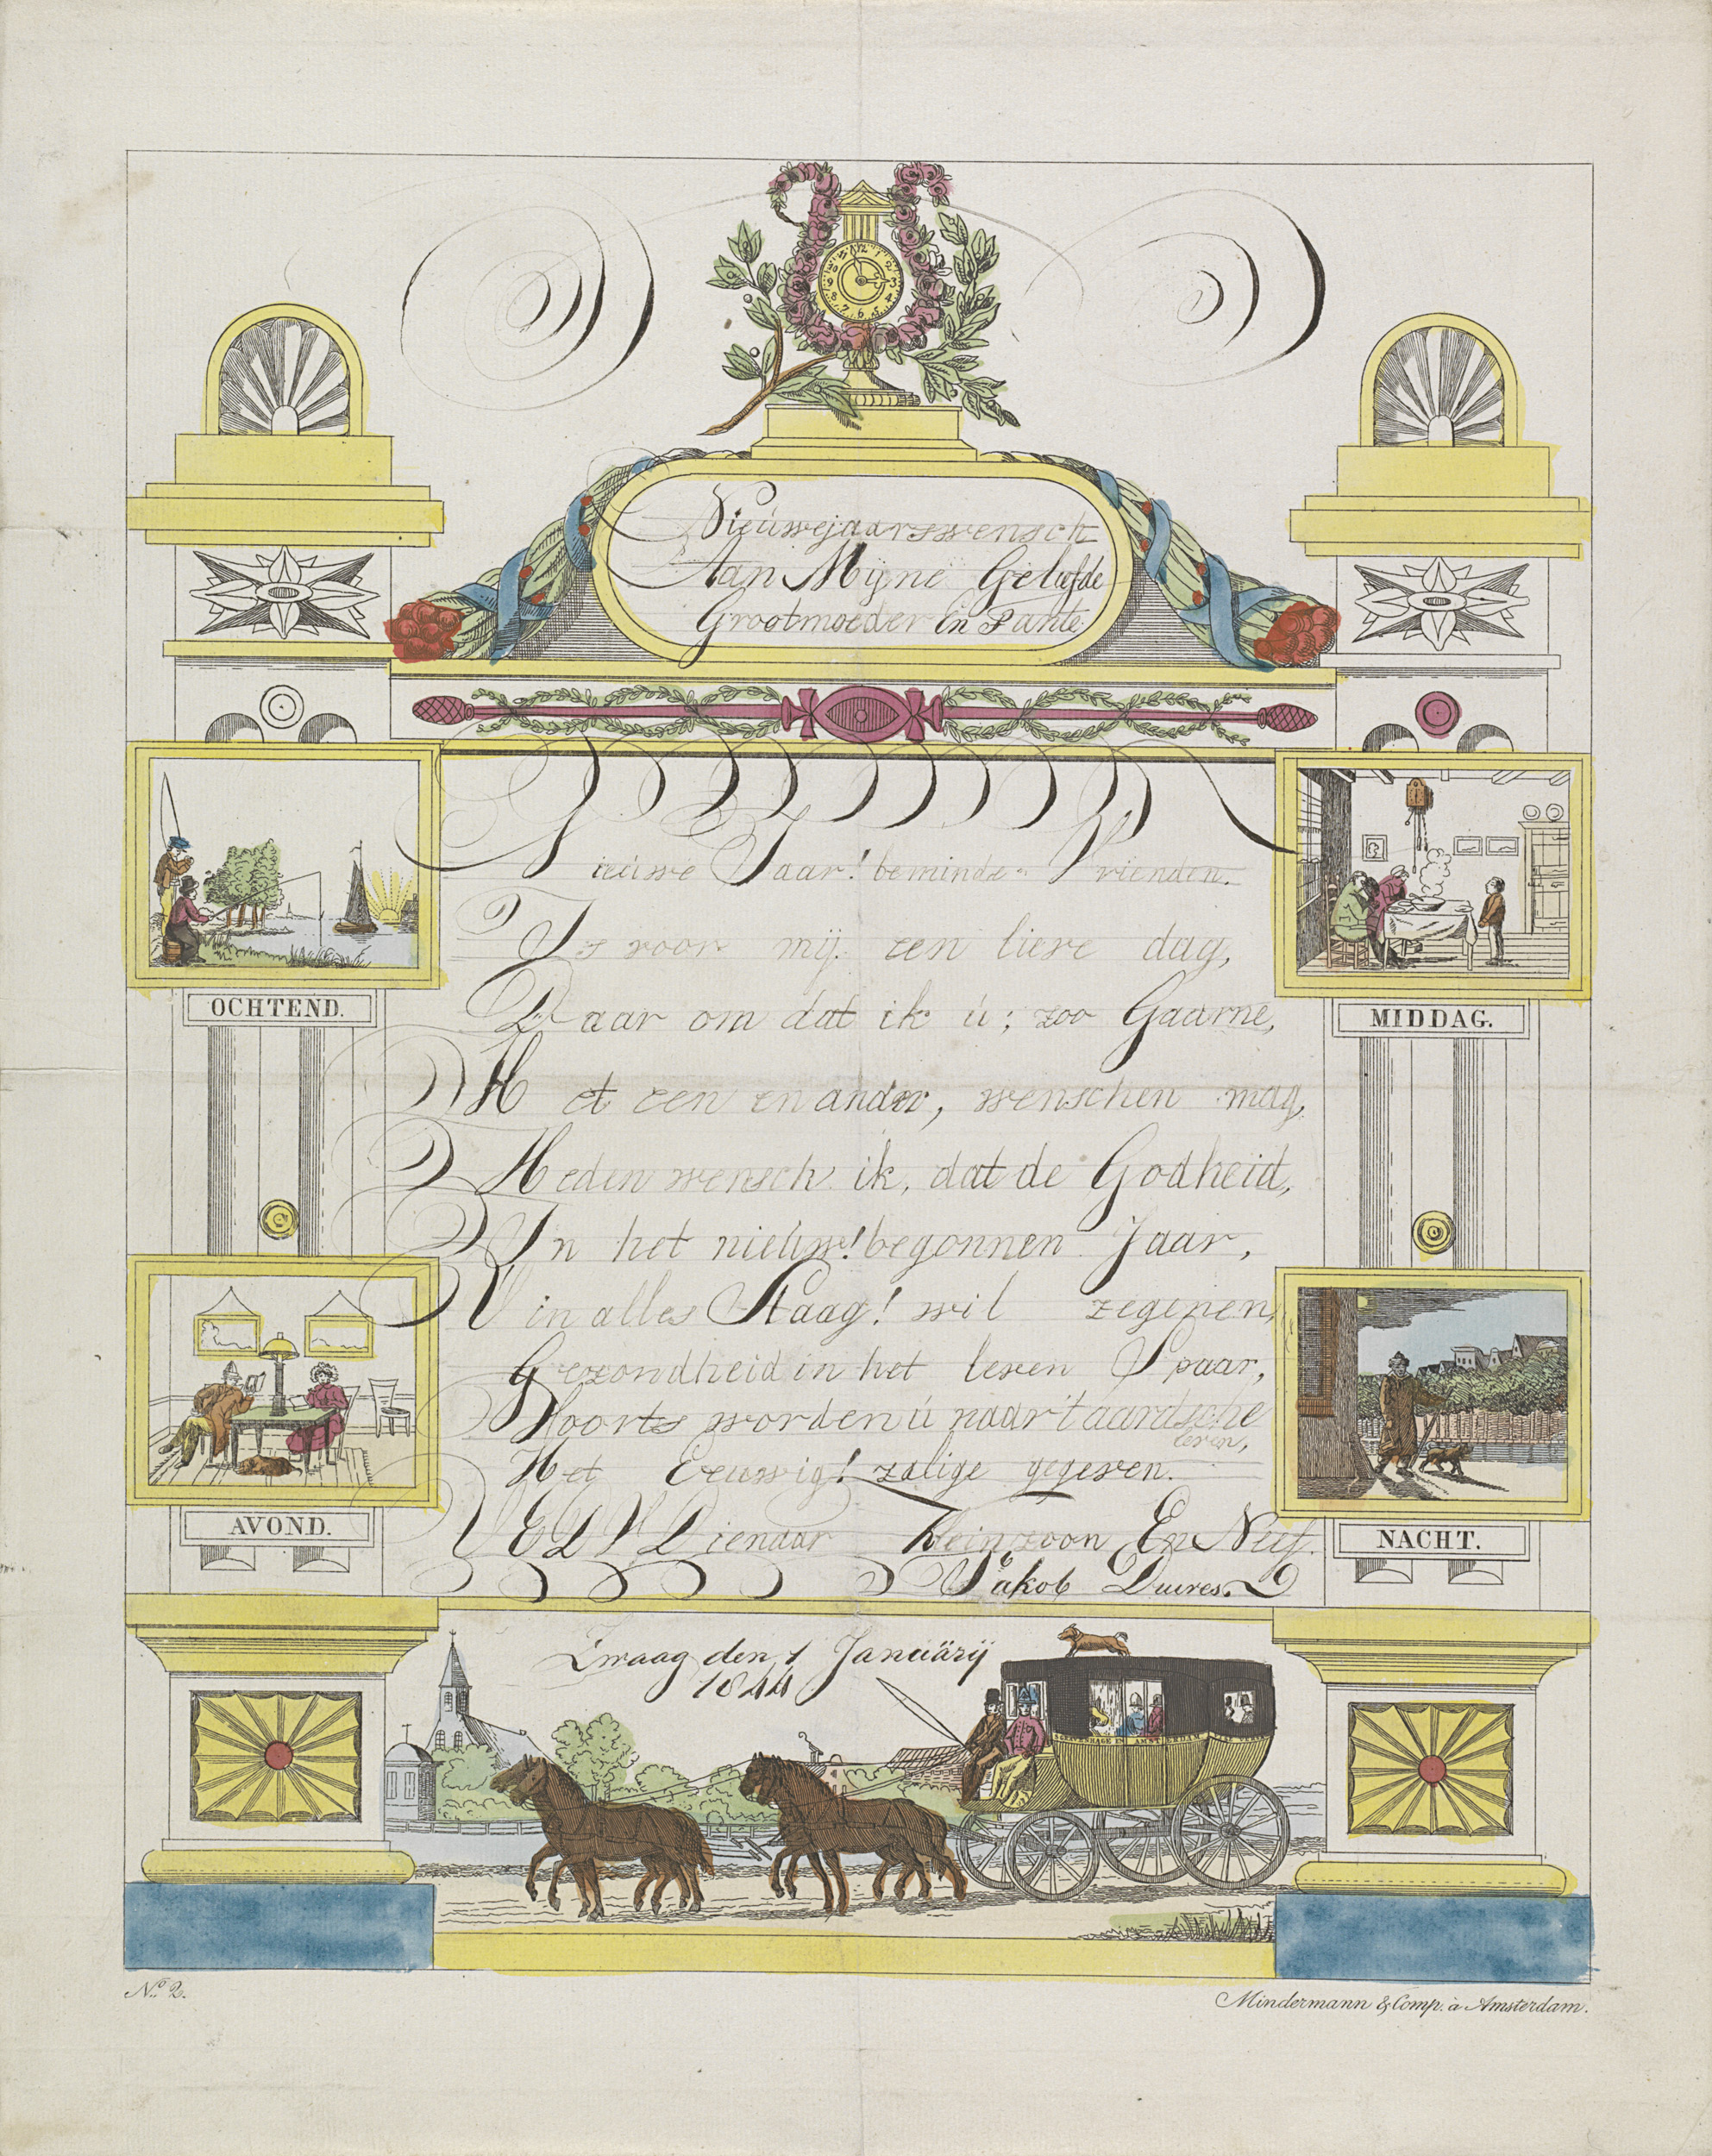 Nieúwejaarswensch
Aan Mijne Geliefde
Grootmoeder En Tante
Nieuwe Jaar! beminde Vrienden.
Is voor mij een lieve dag,
Daar om dat ik ú; zoo Gaarne,
Het een en ander, wenschen mag,
OCHTEND.
MIDDAG.
Heden wensch ik, dat de Godheid,
In het nieúw! begonnen Jaar,
U in alles Staag! wil zegenen,
Gezondheid in het leven Spaar,
Voorts worden ú naar't aardsche
leven,
Het Eeuwig! zalige gegeven.
AVOND.
NACHT.
UEDW Dienaar Kleinzoon En Neef.
Jakob Duives.
Zwaag den 1 Januärij
1844
'S GRAVENHAGE EN AMSTERDAM
No. 2.
Mindermann & Comp. à Amsterdam.